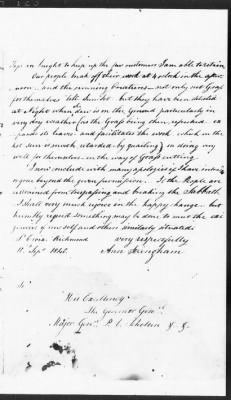 Tops in bright to keep up the few customers I am able to retain.
Our people break off their work at 4 o'clock in the after-
noon and the evening vocations not only cut Grass
for themselves 'till Sun set but they have been detected
at Night when dew is on the Ground particularly in
very dry weather (the Grass being then refreshed ex-
pands its leaves and facilitates the work which in the
hot sun is much retarded by
well for themselves in the way of Grass cutting.
I now conclude with many apologies if I have intru
to go beyond the given permission. If the People are
restrained from trespassing and breaking the Sabbath
I shall very much rejoice on the happy change but
humbly request something may be done to meet the ex
penses of myself and others similarly situated
St Croix Richmond very respectfully
11th Sept 1843. Ann Bringham
To
His Excellency
The Governor Gen'l
Major Gen'l P. v. Scholten